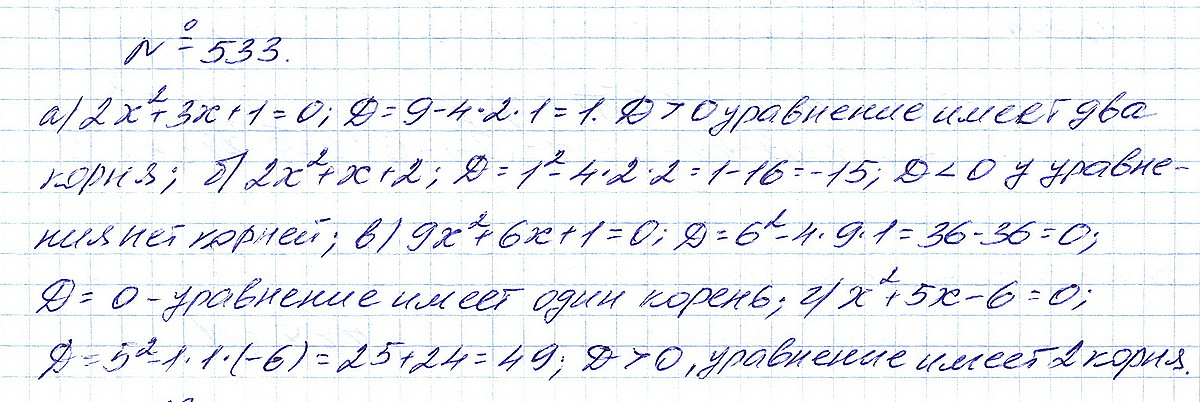 № 533.
а) 2x²+3x+1=0; D=9-4·2·1=1. D>0 уравнение имеет два
корня; б) 2x²+x+2; D=1²-4·2·2=1-16=-15; D<0 у уравне-
ния нет корней; в) 9x²+6x+1=0; D=6²-4·9·1=36-36=0;
D=0 - уравнение имеет один корень; г) x²+5x-6=0;
D=5²-1·1·(-6)=25+24=49; D>0, уравнение имеет 2 корня.